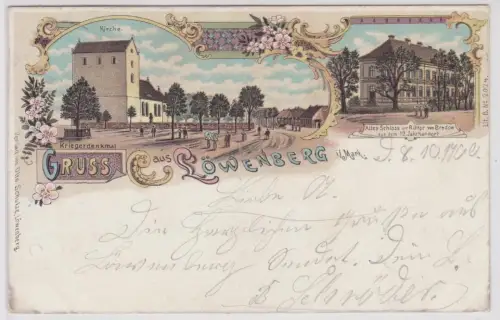 Kirche
Kriegerdenkmal
Altes Schloss der Ritter von Bredow
aus dem 17. Jahrhundert
GRUSS aus LÖWENBERG
i/Mark.
D. 8. 10.
Liebe
Die herzlichen Grüße aus
Löwenberg sendet. Dein
Schröder.